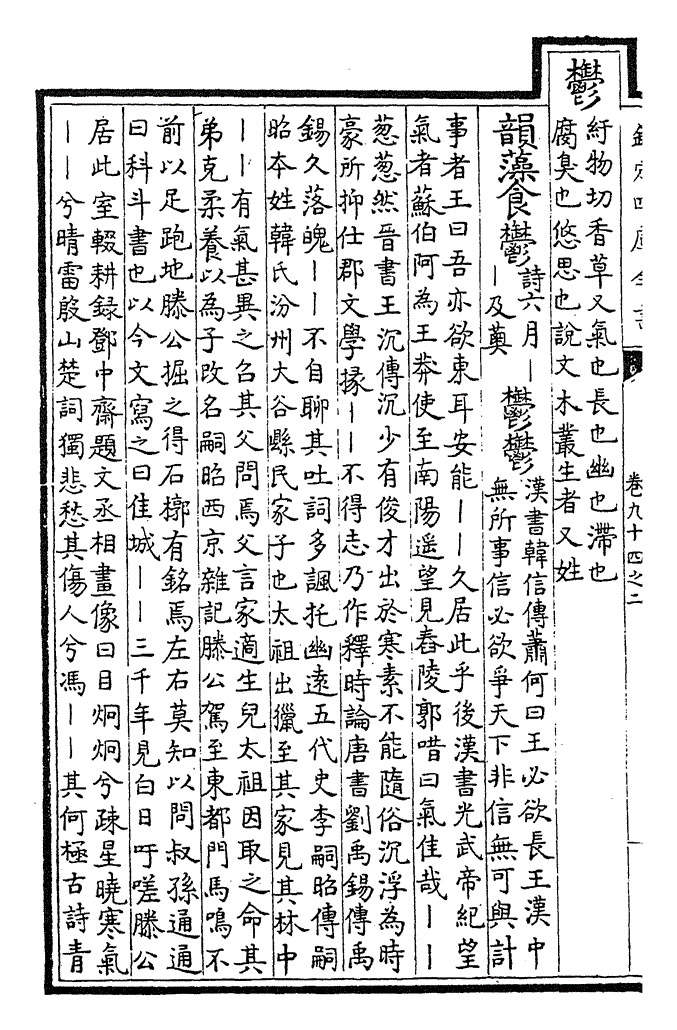 欽定四庫全書
卷九十四之二
鬱
紆物切香草又氣也長也幽也滯也
腐臭也悠思也說文木叢生者又姓
韻藻食鬱
詩六月〡
〡及薁
鬱鬱
漢書韓信傳蕭何曰王必欲長王漢中
無所事信必欲爭天下非信無可與計
事者王曰吾亦欲東耳安能〡〡久居此乎後漢書光武帝紀望
氣者蘇伯阿為王莽使至南陽遥望見舂陵郭唶曰氣佳哉〡〡
葱葱然晉書王沉傳沉少有俊才出於寒素不能隨俗沉浮為時
豪所抑仕郡文學掾〡〡不得志乃作釋時論唐書劉禹錫傳禹
錫久落魄〡〡不自聊其吐詞多諷托幽遠五代史李嗣昭傳嗣
昭本姓韓氏汾州大谷縣民家子也太祖出獵至其家見其林中
〡〡有氣甚異之召其父問焉父言家適生兒太祖因取之命其
弟克柔養以為子改名嗣昭西京雜記滕公駕至東都門馬鳴不
前以足跑地滕公掘之得石槨有銘焉左右莫知以問叔孫通通
曰科斗書也以今文寫之曰佳城〡〡三千年見白日吁嗟滕公
居此室輟耕録鄧中齋題文丞相畫像曰目炯炯兮疎星曉寒氣
〡〡兮晴雷殷山楚詞獨悲愁其傷人兮馮〡〡其何極古詩青